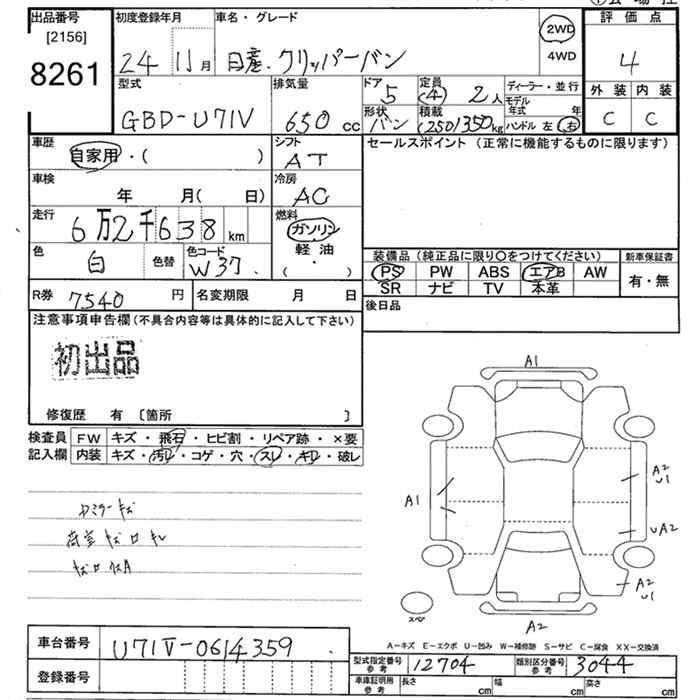 出品番号
[2156]
8261
初度登録年月
24 11月
車名・グレード
日産・クリッパーバン
2WD
4WD
評価点
4
外装 内装
C C
型式
GBD-U71V
排気量
650cc
ドア 5
形状 バン
定員 (4) 2人
積載 (250)350kg
ディーラー・並行
モデル年式 年
ハンドル 左 右
車歴
自家用・( )
シフト
AT
セールスポイント(正常に機能するものに限ります)
車検
年 月( 日)
冷房
AC
走行
6万2千638km
燃料
ガソリン
軽油
・( )
色
白
色替
色コード
W37
装備品(純正品に限り○をつけてください)
PS PW ABS エアB AW
SR ナビ TV 本革
新車保証書
有・無
R券 7540円
名変期限 月 日
後日品
注意事項申告欄(不具合内容等は具体的に記入して下さい)
初出品
修復歴 有 [箇所 ]
検査員記入欄
FW キズ・飛石・ヒビ割・リペア跡・×要
内装 キズ・汚レ・コゲ・穴・スレ・キレ・破レ
A1
A1
A2
U1
UA2
A2
U1
スペア
A2
A－キズ E－エクボ U－凹み W－補修跡 S－サビ C－腐食 XX－交換済
車台番号 U71V-0614359
登録番号
型式指定番号参考 12704
類別区分番号参考 3044
車庫証明用参考 長さ cm 幅 cm 高さ cm